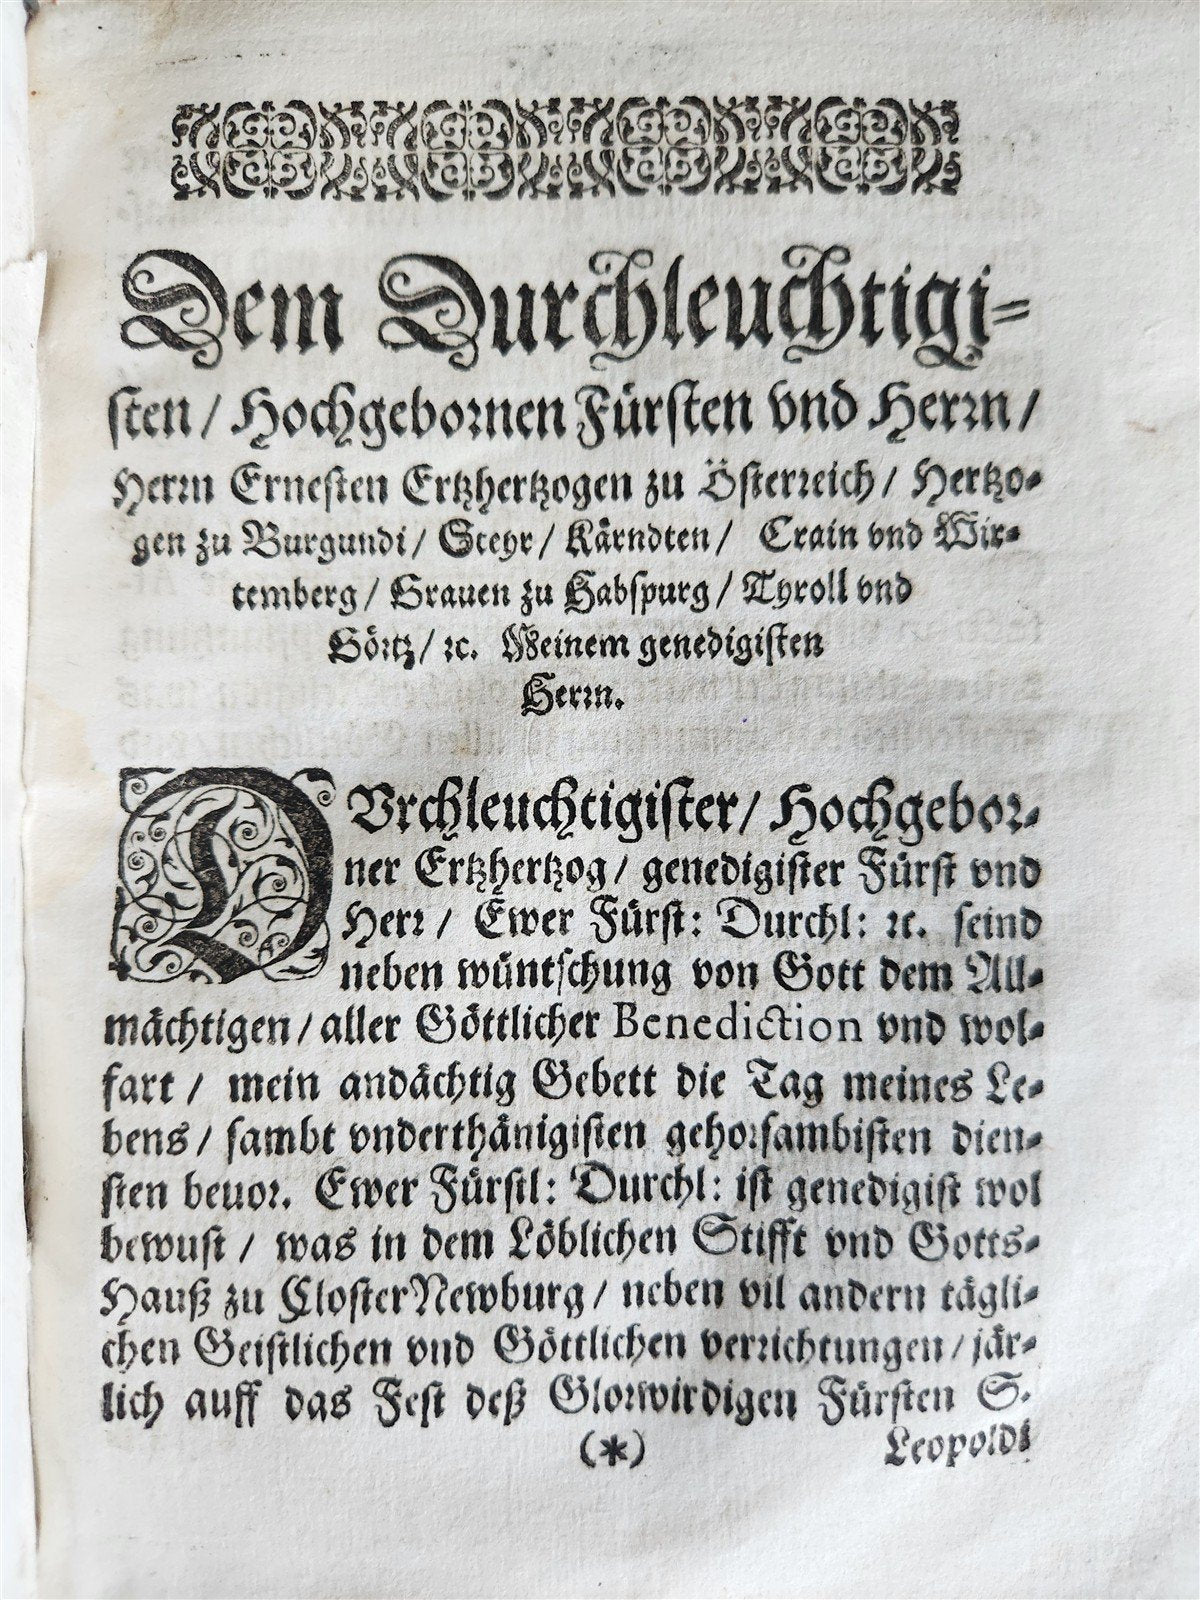 Dem Durchleuchtigi-
sten / Hochgebornen Fürsten vnd Herrn /
Herrn Ernesten Ertzhertzogen zu Österreich / Hertzo-
gen zu Burgundi / Steyr / Kärndten / Crain vnd Wir-
temberg / Grauen zu Habspurg / Tyroll vnd
Görtz / ꝛc. Meinem genedigisten
Herrn.
DVrchleuchtigister / Hochgebor-
ner Ertzhertzog / genedigister Fürst vnd
Herr / Ewer Fürst: Durchl: ꝛc. seind
neben wüntschung von Gott dem All-
mächtigen / aller Göttlicher Benediction vnd wol-
fart / mein andächtig Gebett die Tag meines Le-
bens / sambt vnderthänigisten gehorsambisten dien-
sten beuor. Ewer Fürstl: Durchl: ist genedigist wol
bewust / was in dem Löblichen Stifft vnd Gotts-
Hauß zu ClosterNewburg / neben vil andern tägli-
chen Geistlichen vnd Göttlichen verrichtungen / jär-
lich auff das Fest deß Glorwirdigen Fürsten S.
(*) Leopoldi